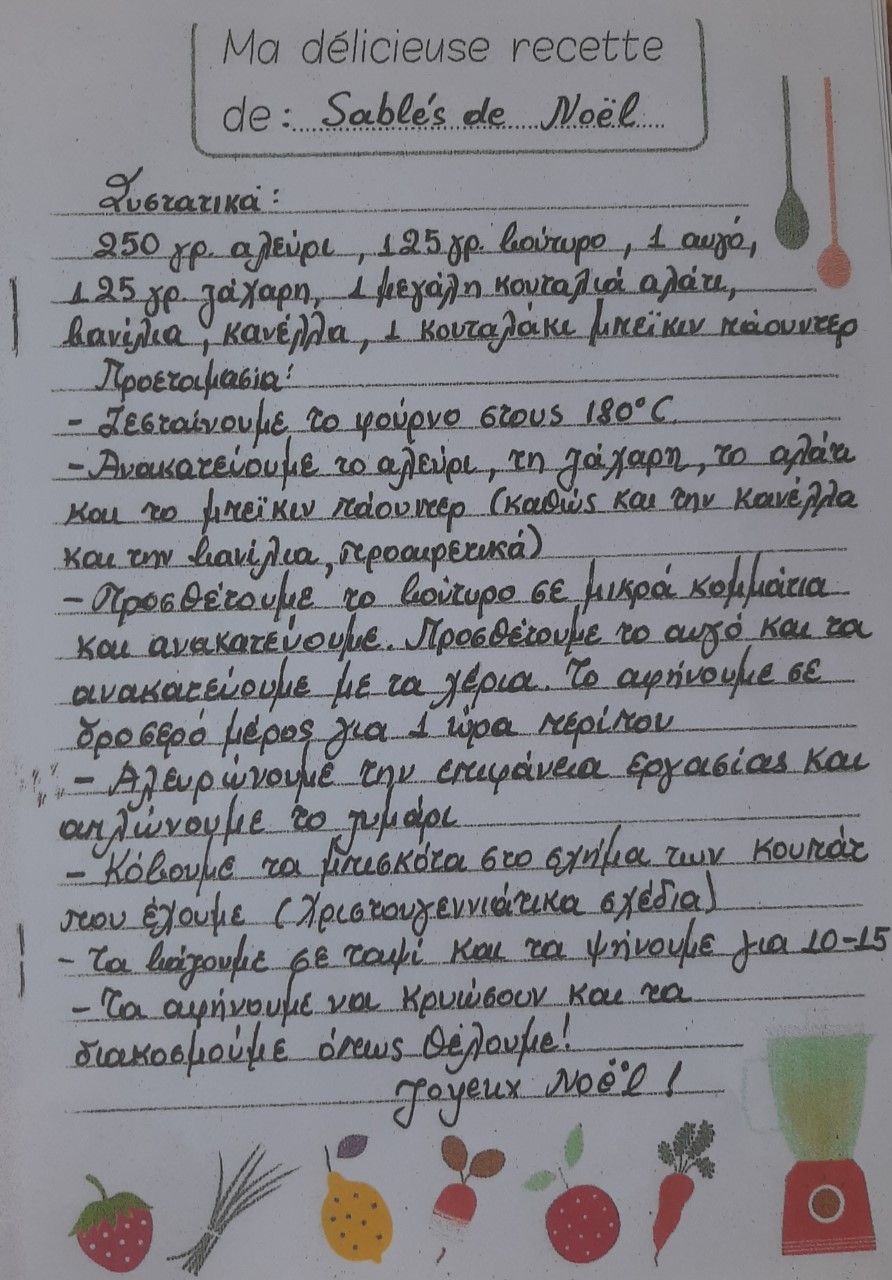 Ma délicieuse recette
de: Sablés de Noël
Συστατικά:
250 γρ. αλεύρι, 125 γρ. βούτυρο, 1 αυγό,
125 γρ. ζάχαρη, 1 μεγάλη κουταλιά αλάτι,
βανίλια, κανέλλα, 1 κουταλάκι μπέϊκιν πάουντερ
Προετοιμασία:
- Ζεσταίνουμε το φούρνο στους 180°C
- Ανακατεύουμε το αλεύρι, τη ζάχαρη, το αλάτι
και το μπέϊκιν πάουντερ (καθώς και την κανέλλα
και την βανίλια, προαιρετικά)
- Προσθέτουμε το βούτυρο σε μικρά κομμάτια
και ανακατεύουμε. Προσθέτουμε το αυγό και τα
ανακατεύουμε με τα χέρια. Το αφήνουμε σε
δροσερό μέρος για 1 ώρα περίπου
- Αλευρώνουμε την επιφάνεια εργασίας και
απλώνουμε το ζυμάρι
- Κόβουμε τα μπισκότα στο σχήμα των κουπάτ
που έχουμε (Χριστουγεννιάτικα σχέδια)
- Τα βάζουμε σε ταψί και τα ψήνουμε για 10-15
- Τα αφήνουμε να κρυώσουν και τα
διακοσμούμε όπως θέλουμε!
Joyeux Noël!